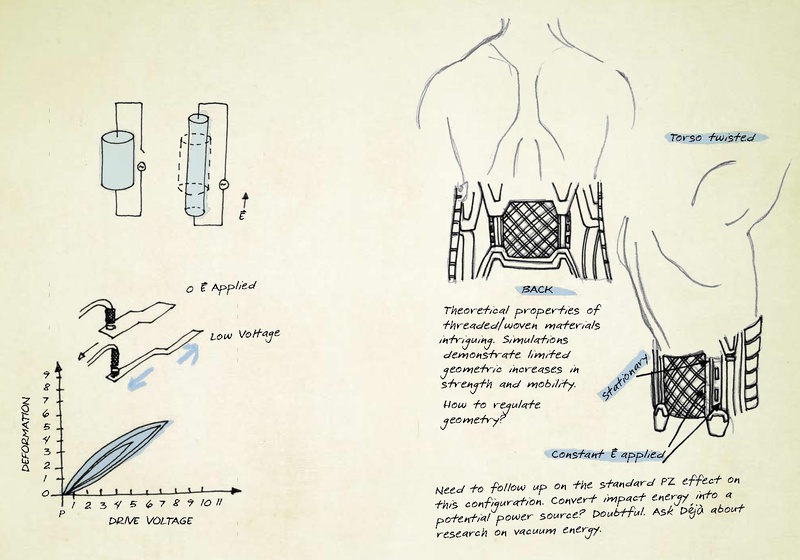 E⃗
0 E⃗ Applied
Low Voltage
DEFORMATION
9
8
7
6
5
4
3
2
1
0
P
1 2 3 4 5 6 7 8 9 10 11
DRIVE VOLTAGE
Torso twisted
BACK
Theoretical properties of
threaded/woven materials
intriguing. Simulations
demonstrate limited
geometric increases in
strength and mobility.
How to regulate
geometry?
Stationary
Constant E⃗ applied
Need to follow up on the standard PZ effect on
this configuration. Convert impact energy into a
potential power source? Doubtful. Ask Déjà about
research on vacuum energy.